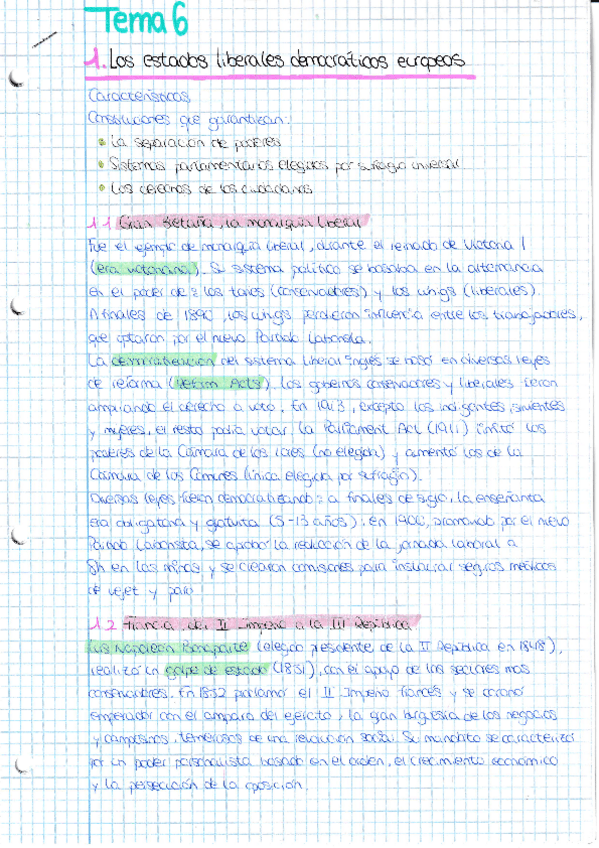 Tema 6
1. Los estados liberales democráticos europeos
Características
Constituciones que garantizan:
• La separación de poderes
• Sistemas parlamentarios elegidos por sufragio universal
• Los derechos de los ciudadanos
1.1 Gran Bretaña, la monarquía liberal
Fue el ejemplo de monarquía liberal, durante el reinado de Victoria I
(era victoriana). Su sistema político se basaba en la alternancia
en el poder de: los tories (conservadores) y los whigs (liberales).
A finales de 1890, los whigs perdieron influencia entre los trabajadores,
que optaron por el nuevo Partido Laborista.
La democratización del sistema liberal inglés se basó en diversas leyes
de reforma (Reform Acts). Los gobiernos conservadores y liberales fueron
ampliando el derecho a voto. En 1913, excepto los indigentes, sirvientes
y mujeres, el resto podía votar. La Parliament Act (1911) limitó los
poderes de la Cámara de los Lores (no elegida) y aumentó los de la
Cámara de los Comunes (única elegida por sufragio).
Diversas leyes fueron democratizando: a finales de siglo, la enseñanza
era obligatoria y gratuita (5-13 años); en 1900, promovido por el nuevo
Partido Laborista, se aprobó la reducción de la jornada laboral a
8h en las minas y se crearon comisiones para instaurar seguros médicos
de vejez y paro
1.2 Francia, del II Imperio a la III República
Luis Napoleón Bonaparte (elegido presidente de la II República en 1848),
realizó un golpe de estado (1851), con el apoyo de los sectores más
conservadores. En 1852 proclamó el II Imperio francés y se coronó
emperador con el amparo del ejército, la gran burguesía de los negocios
y campesinos, temerosos de una revolución social. Su mandato se caracterizó
por un poder personalista basado en el orden, el crecimiento económico
y la persecución de la oposición.